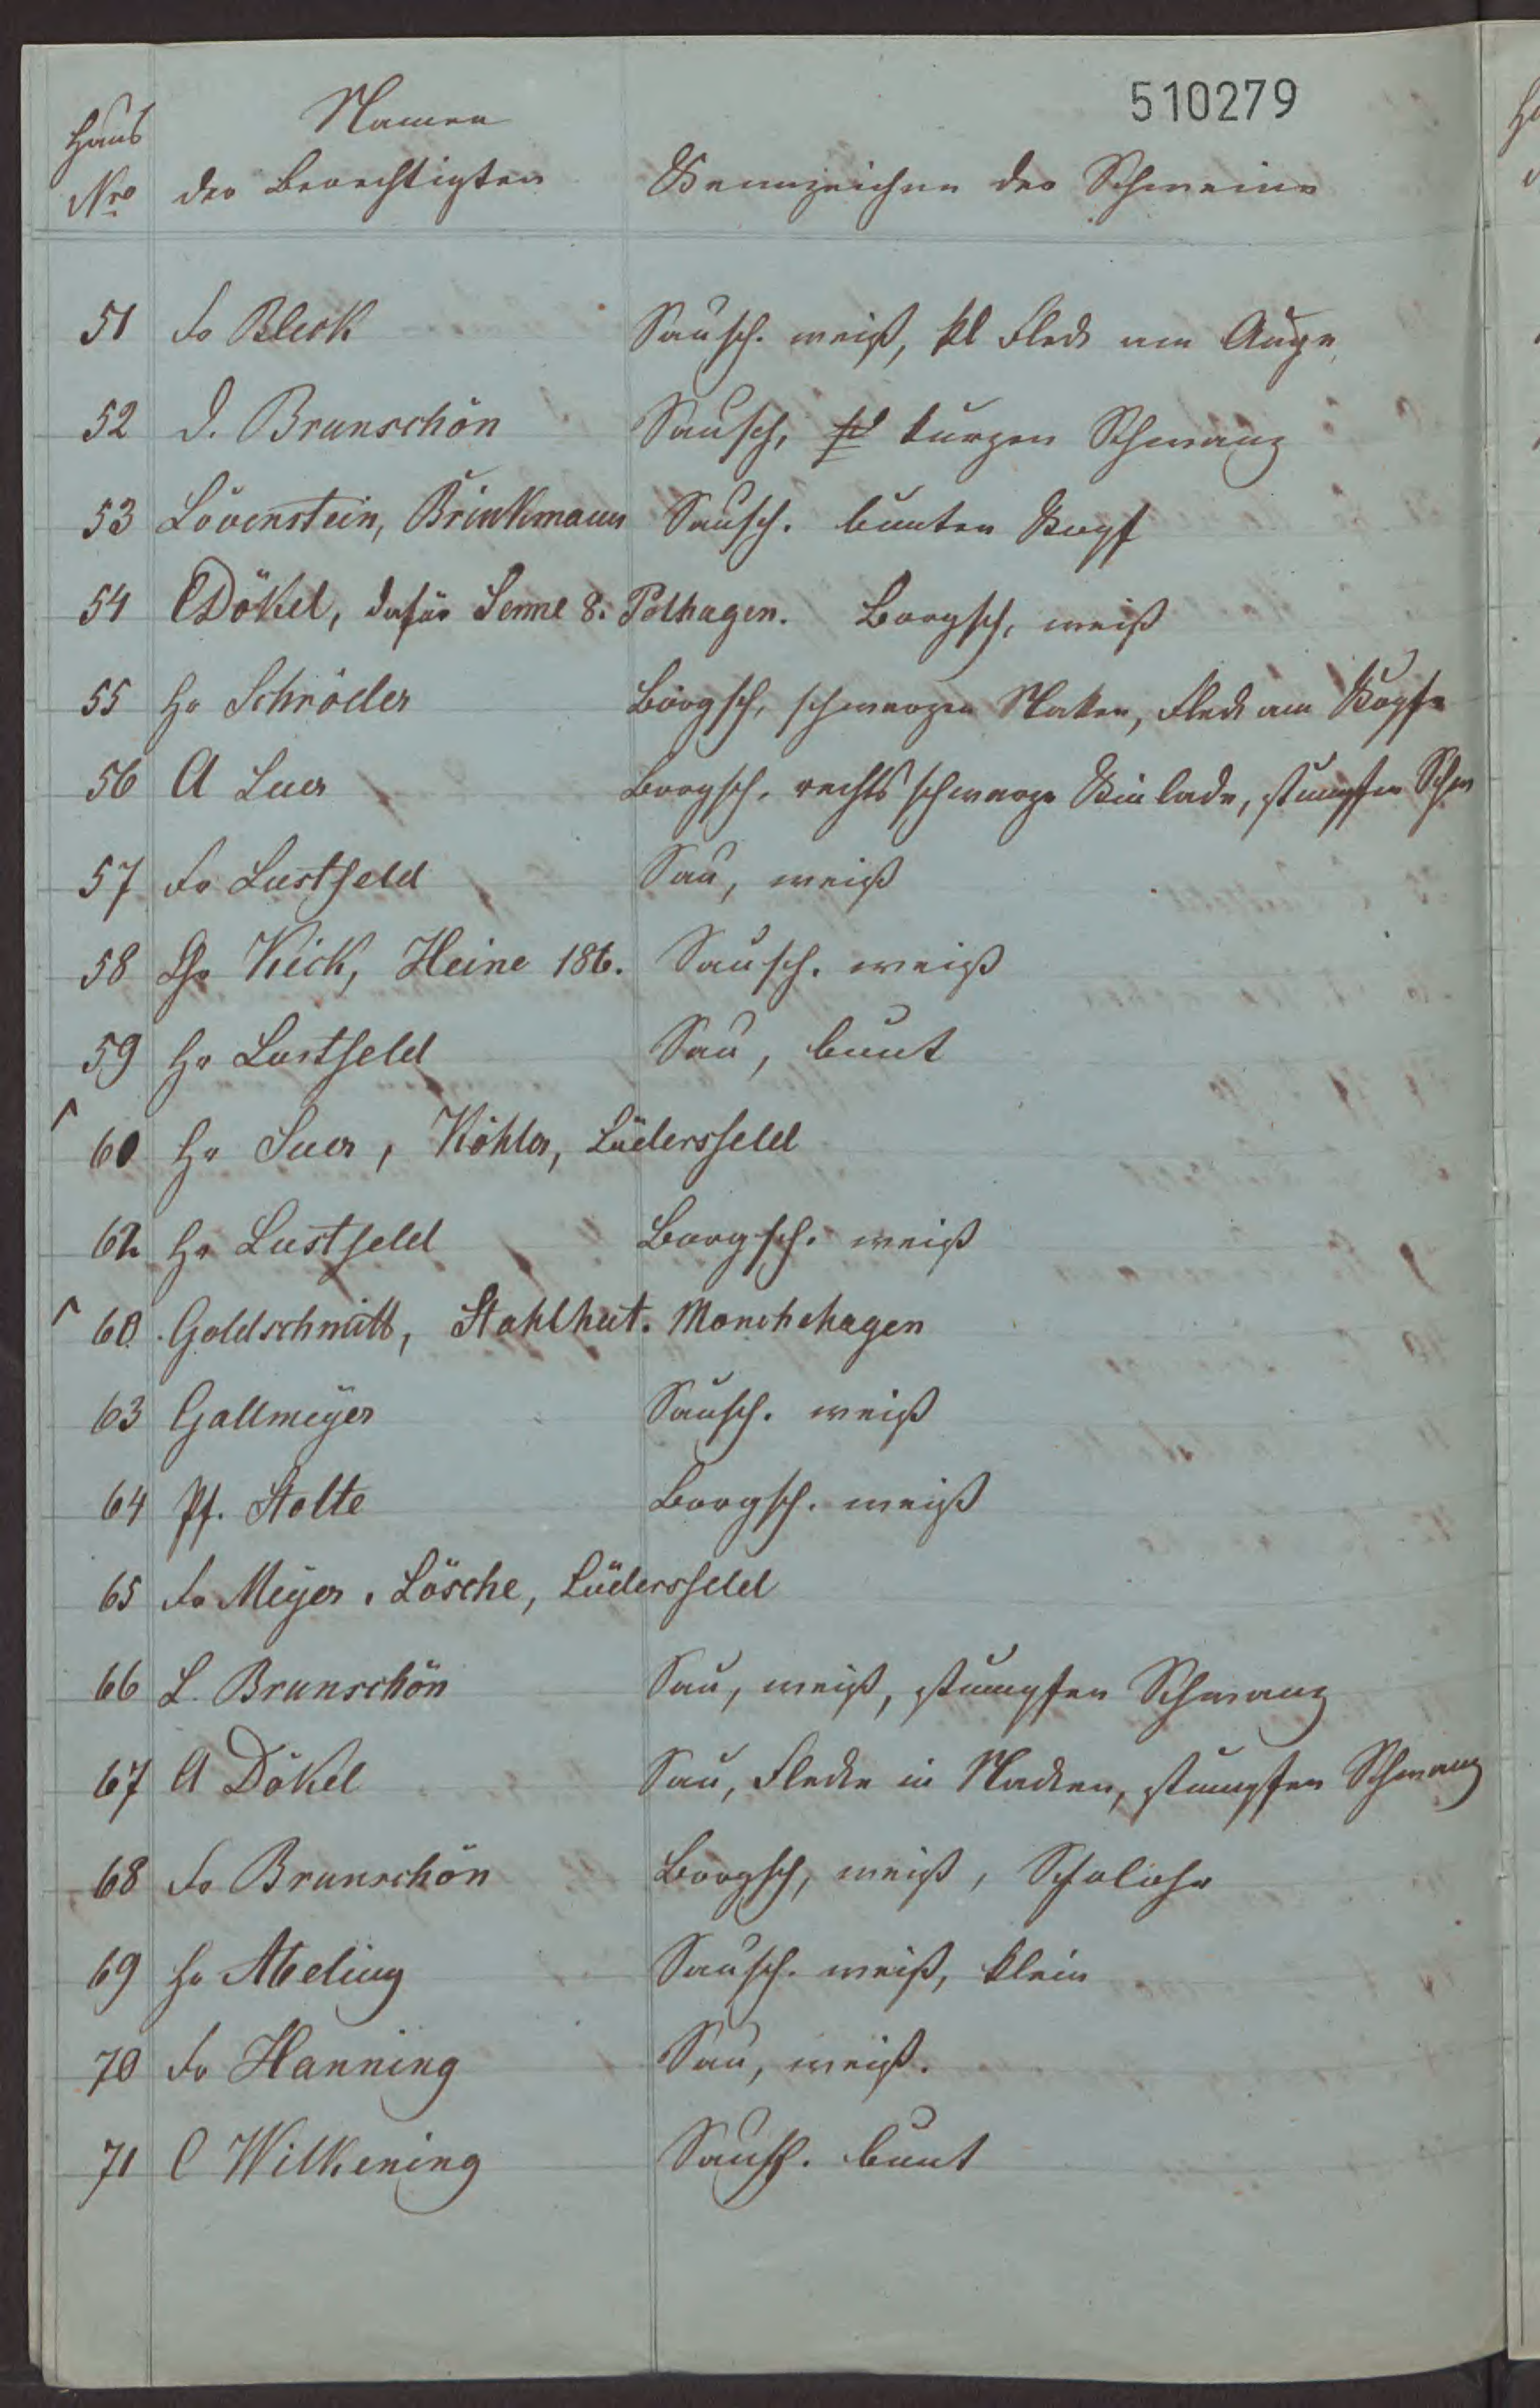 510279
Haus Nro
Namen der Berechtigten
Kennzeichen der Schweine
51 Fr Bleck Sausch. weiß, kl Fleck am Auge
52 D. Brunschön Sausch, kurzen Schwanz
53 Lövenstein, Brinkmann Sausch. bunten Kopf
54 C Dökel, dafür Senne 8. Polhagen. Borgsch, weiß
55 Hr Schröder Borgsch, schwarzen Naken, Fleck am Kopfe
56 A Luer Borgsch, rechts schwarze Kinlade, stumpfen Schw
57 Fr Lustfeld Sau, weiß
58 Chr Kick, Heine 186. Sausch. weiß
59 Hr Lustfeld Sau, bunt
60 Hr Suer, Köhler, Lüdersfeld
62 Hr Lustfeld Borgsch. weiß
60 Goldschmitt, Stahlhut. Monchehagen
63 Gallmeyer Sausch. weiß
64 Pf. Stolte Borgsch. weiß
65 Fr Meyer. Lösche, Lüdersfeld
66 L. Brunschön Sau, weiß, stumpfen Schwanz
67 A Dökel Sau, Flecke in Nacken, stumpfen Schwanz
68 Fr Brunschön Borgsch, weiß,
69 Hr Abeling Sausch. weiß, klein
70 Fr Hanning Sau, weiß.
71 C Wilkening Sausch. bunt